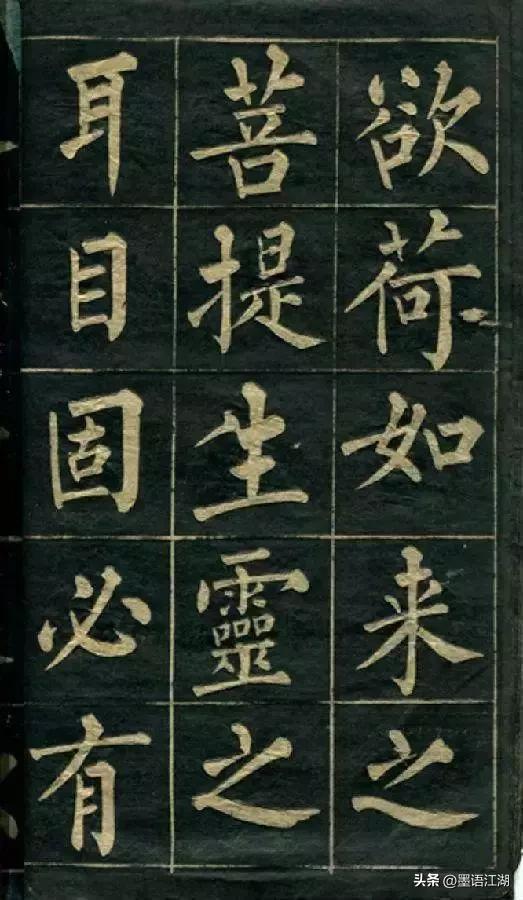 欲荷如来之
菩提生靈之
耳目固必有
头条 @墨语江湖